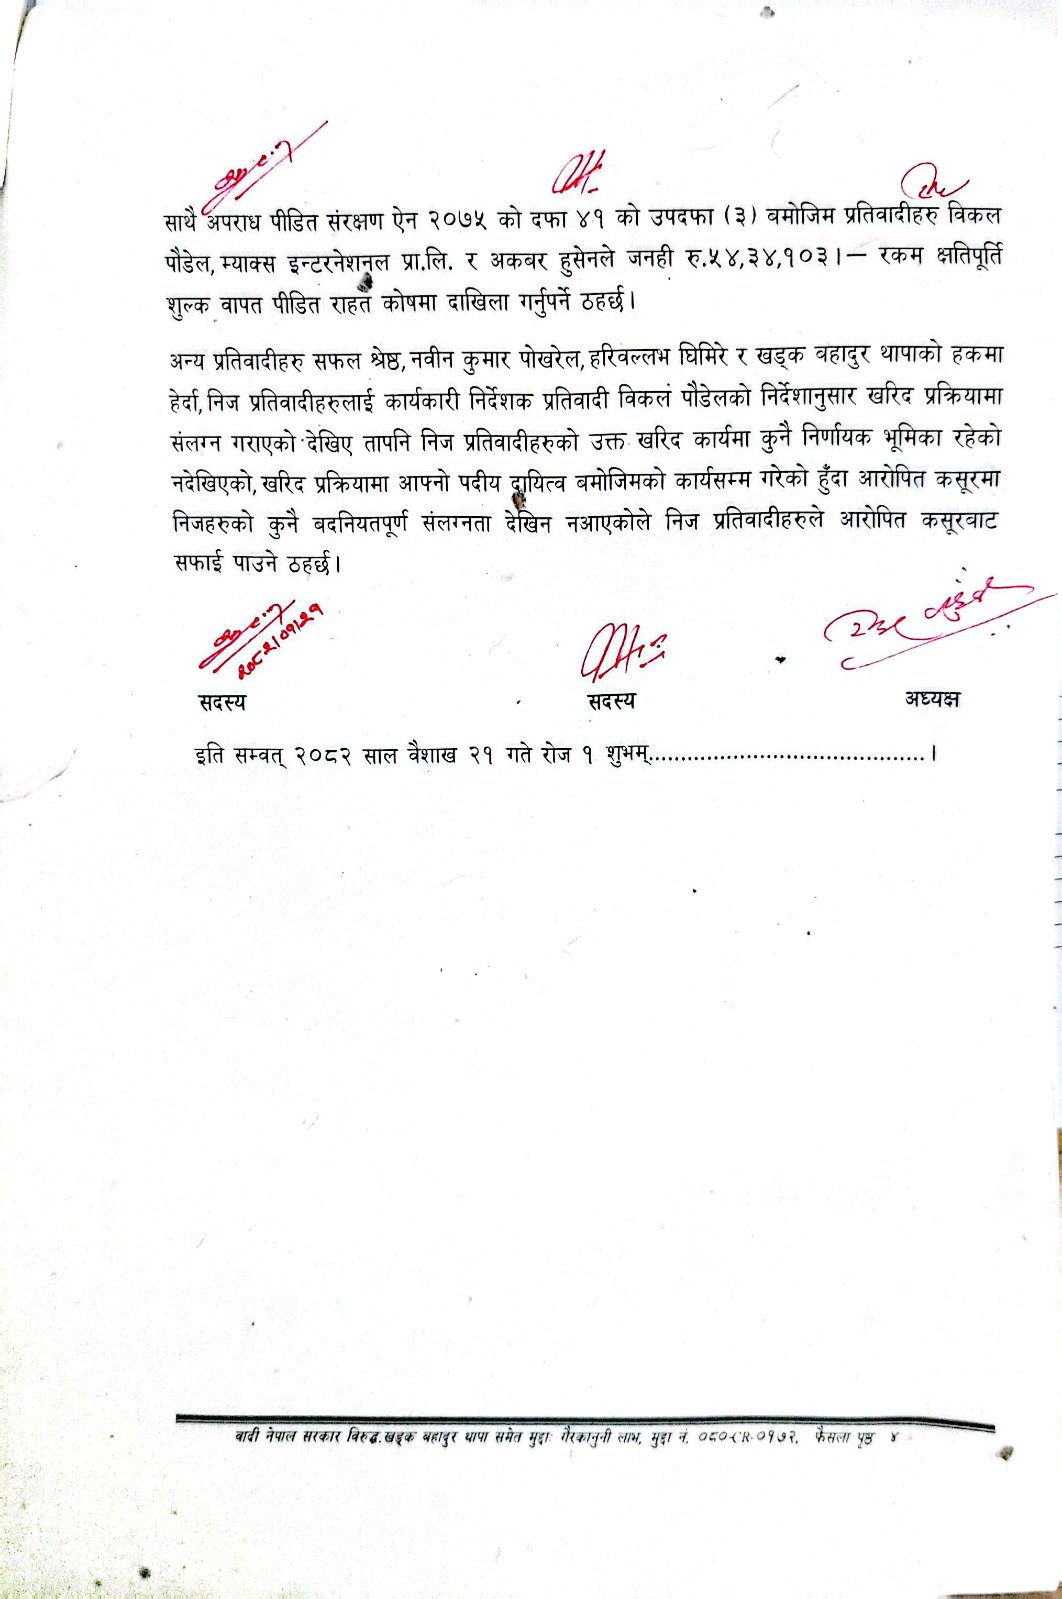 साथै अपराध पीडित संरक्षण ऐन २०७५ को दफा ४१ को उपदफा (३) बमोजिम प्रतिवादीहरु विकल
पौडेल, म्याक्स इन्टरनेशनल प्रा.लि. र अकबर हुसेनले जनही रु.५४,३४,१०३।– रकम क्षतिपूर्ति
शुल्क वापत पीडित राहत कोषमा दाखिला गर्नुपर्ने ठहर्छ।
अन्य प्रतिवादीहरु सफल श्रेष्ठ, नवीन कुमार पोखरेल, हरिवल्लभ घिमिरे र खड्क बहादुर थापाको हकमा
हेर्दा, निज प्रतिवादीहरुलाई कार्यकारी निर्देशक प्रतिवादी विकल पौडेलको निर्देशानुसार खरिद प्रक्रियामा
संलग्न गराएको देखिए तापनि निज प्रतिवादीहरुको उक्त खरिद कार्यमा कुनै निर्णायक भूमिका रहेको
नदेखिएको, खरिद प्रक्रियामा आफ्नो पदीय दायित्व बमोजिमको कार्यसम्म गरेको हुँदा आरोपित कसूरमा
निजहरुको कुनै बदनियतपूर्ण संलग्नता देखिन नआएकोले निज प्रतिवादीहरुले आरोपित कसूरबाट
सफाई पाउने ठहर्छ।
२०८२।०१।२१
सदस्य सदस्य अध्यक्ष
इति सम्वत् २०८२ साल वैशाख २१ गते रोज १ शुभम्............................................।
वादी नेपाल सरकार विरुद्ध खड्क बहादुर थापा समेत मुद्दाः गैरकानुनी लाभ, मुद्दा नं. ०८०-CR-०१७२, फैसला पृष्ठ ४